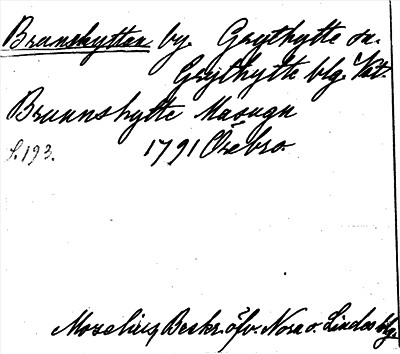 Brunshyttan by. Grythytte sn.
Grythytte blg. Väst.
Brunnshytte Masugn
S. 193. 1791 Örebro.
Mozelius Beskr. öfv. Nora o. Lindes blg.